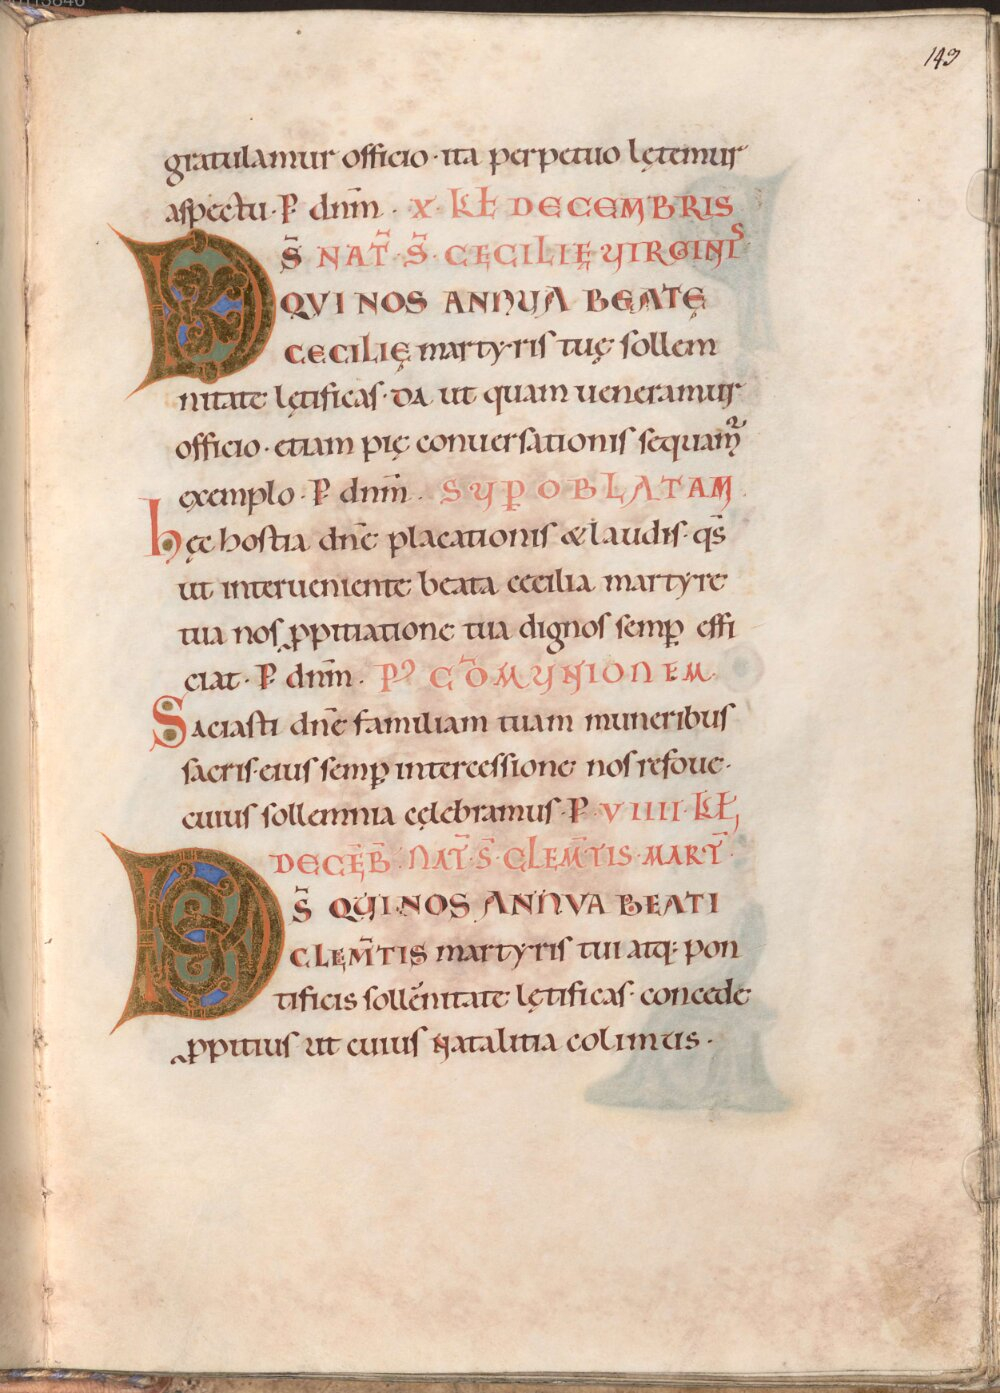 149
gratulamur officio · ita perpetuo lętemur
aspectu · P̄ dnm̄ · X · KL̄ DECEMBRIS
S̄ NAT̄ · S̄ · CECILIĘ VIRGINIS
DQVI NOS ANNUA BEATĘ
CECILIĘ martyris tuę sollem
nitate lętificas · da ut quam ueneramur
officio · etiam pię conuersationis sequam̃
exemplo · P̄ dnm̄ · SUP OBLATAM
hęc hostia dn̄e placationis & laudis · qs̄
ut interueniente beata cecilia martyre
tua nos ꝓpitiatione tua dignos semp̱ effi
ciat · P̄ dnm̄ · P' COMUNIONEM ·
Saciasti dn̄e familiam tuam muneribus
sacris · eius semp̱ intercessione nos refoue ·
cuius sollemnia cęlebramus · P̄ VIIII · KL̄
DECĒB̄ · NAT̄ · S̄ · CLEM̄TIS · MART̄ ·
DS̄ QUI NOS ANNVA BEATI
CLEM̄TIS martyris tui atq: pon
tificis sollēnitate lętificas · concede
ꝓpitius ut cuius natalitia colimus ·